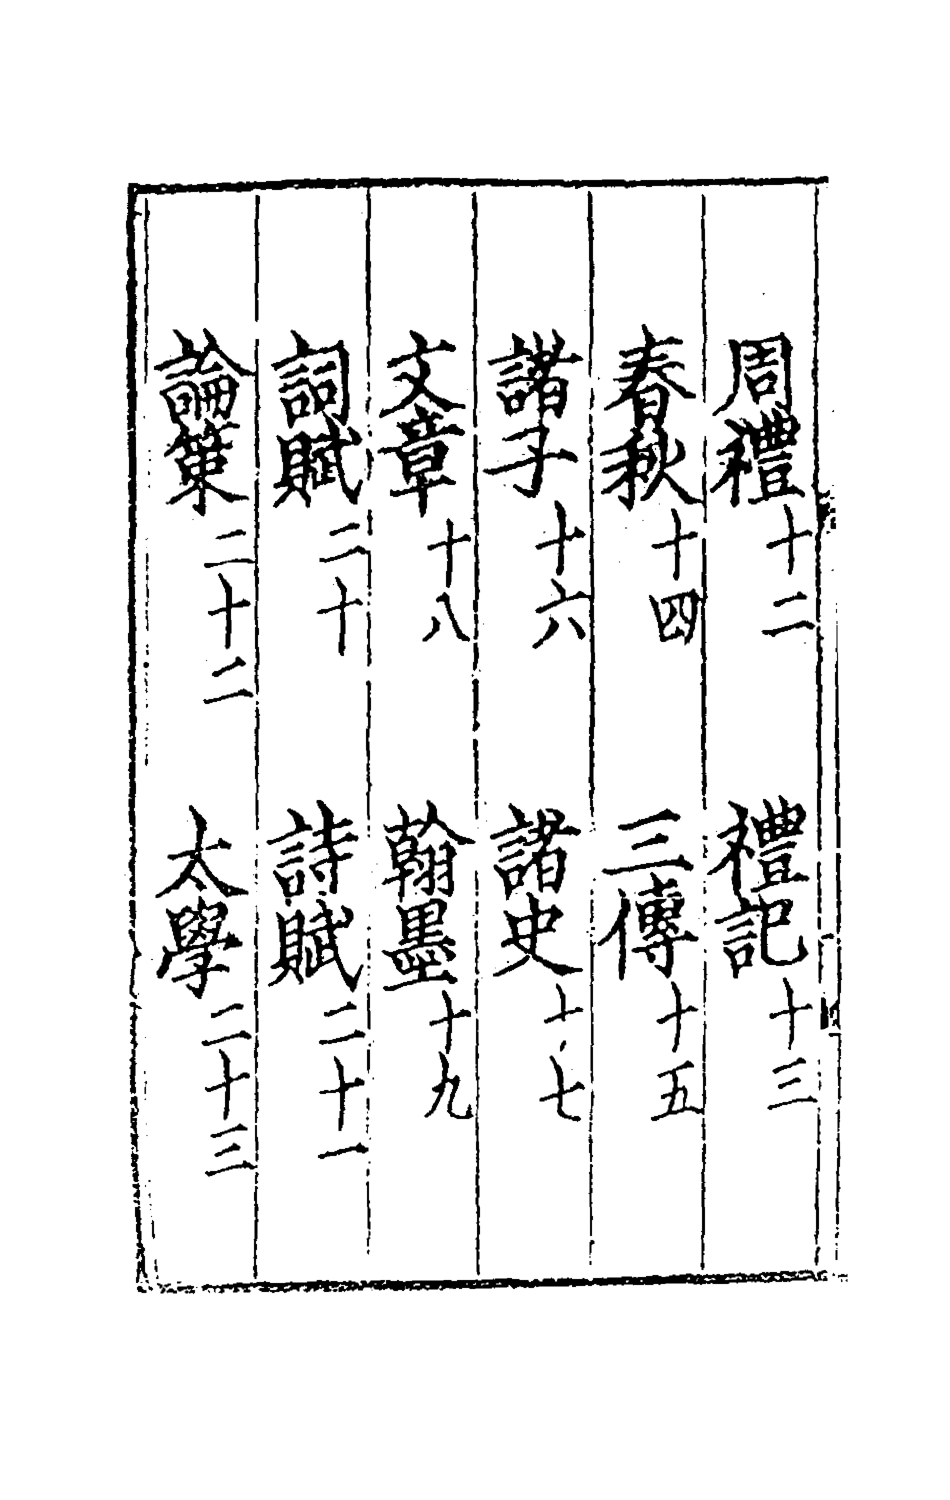 周禮十二　禮記十三
春秋十四　三傳十五
諸子十六　諸史十七
文章十八　翰墨十九
詞賦二十　詩賦二十一
論策二十二　太學二十三